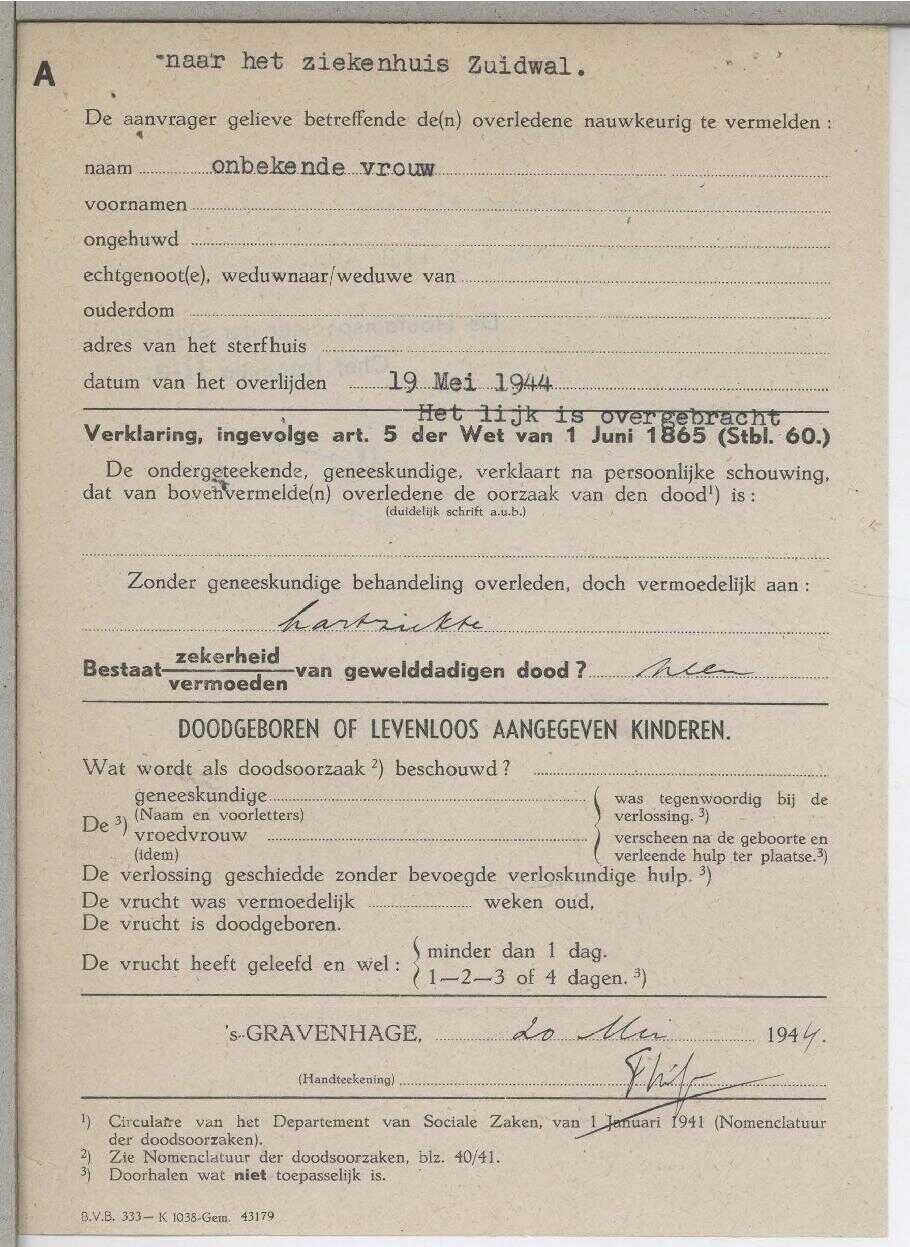 A
naar het ziekenhuis Zuidwal.
De aanvrager gelieve betreffende de(n) overledene nauwkeurig te vermelden :
naam onbekende vrouw
voornamen
ongehuwd
echtgenoot(e), weduwnaar/weduwe van
ouderdom
adres van het sterfhuis
datum van het overlijden 19 Mei 1944
Het lijk is overgebracht
Verklaring, ingevolge art. 5 der Wet van 1 Juni 1865 (Stbl. 60.)
De ondergeteekende, geneeskundige, verklaart na persoonlijke schouwing,
dat van bovenvermelde(n) overledene de oorzaak van den dood¹) is :
(duidelijk schrift a.u.b.)
Zonder geneeskundige behandeling overleden, doch vermoedelijk aan :
hartziekte
Bestaat zekerheid
vermoeden van gewelddadigen dood ? neen
DOODGEBOREN OF LEVENLOOS AANGEGEVEN KINDEREN.
Wat wordt als doodsoorzaak ²) beschouwd ?
De ³) geneeskundige
(Naam en voorletters)
vroedvrouw
(idem)
was tegenwoordig bij de
verlossing. ³)
verscheen na de geboorte en
verleende hulp ter plaatse.³)
De verlossing geschiedde zonder bevoegde verloskundige hulp. ³)
De vrucht was vermoedelijk weken oud,
De vrucht is doodgeboren.
De vrucht heeft geleefd en wel : minder dan 1 dag.
1—2—3 of 4 dagen. ³)
's-GRAVENHAGE, 20 Mei 1944.
(Handteekening)
¹) Circulaire van het Departement van Sociale Zaken, van 1 Januari 1941 (Nomenclatuur
der doodsoorzaken).
²) Zie Nomenclatuur der doodsoorzaken, blz. 40/41.
³) Doorhalen wat niet toepasselijk is.
B.V.B. 333— K 1038-Gem. 43179